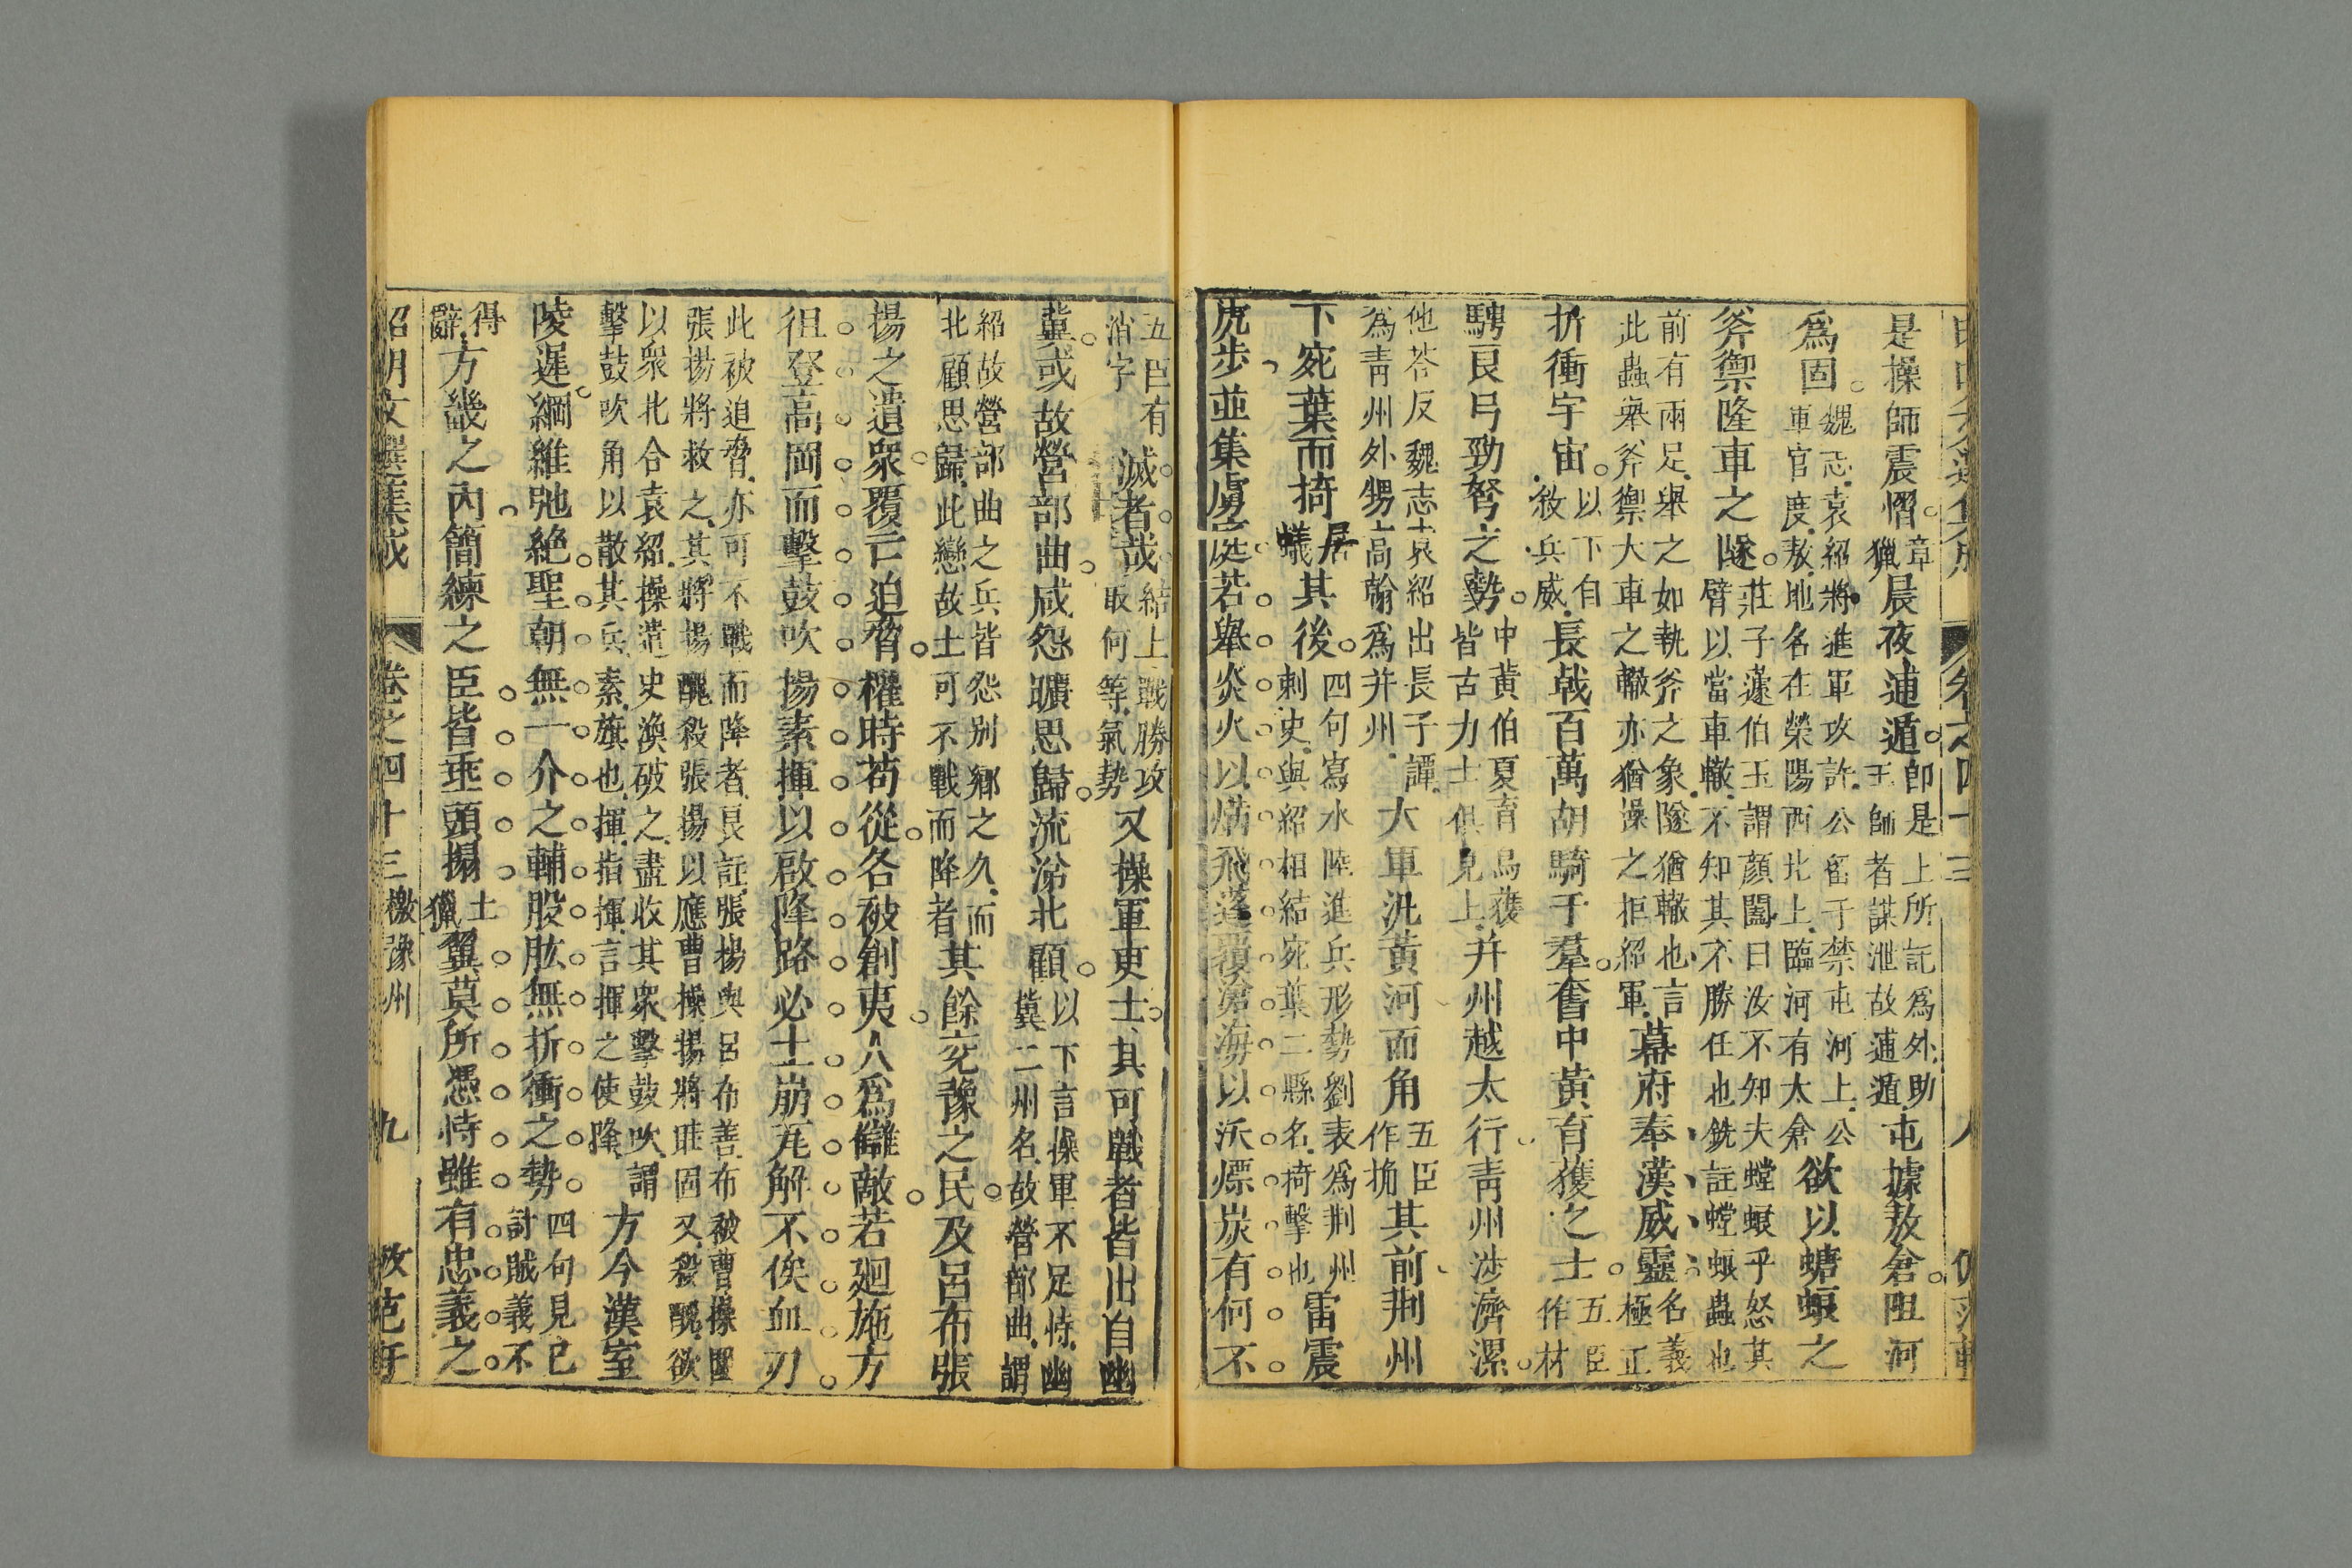 是操師震慴章獵晨夜逋遁卽是上所託爲外助王師者謀泄故逋遁屯據敖倉阻河
爲固魏志袁紹將進軍攻許公留于禁屯河上公軍官度敖地名在滎陽西北上臨河有太倉欲以螗蜋之
斧禦隆車之隧莊子蘧伯玉謂顏闔曰汝不知夫螳蜋乎怒其臂以當車轍不知其不勝任也銑註螳蜋蟲也
前有兩足舉之如執斧之象隧猶轍也言此蟲舉斧禦大車之轍亦猶操之拒紹軍幕府奉漢威靈名義極正
折衝宇宙以下自敘兵威長戟百萬胡騎千羣奮中黃育獲之士五臣作材
騁良弓勁弩之勢中黃伯夏育烏獲皆古力士俱見上并州越太行青州涉濟漯
他荅反魏志袁紹出長子譚爲青州外甥高幹爲并州大軍汎黃河而角五臣作捔其前荆州
下宛葉而掎居蟻其後四句寫水陸進兵形勢劉表爲荆州刺史與紹相結宛葉二縣名掎擊也雷震
虎步並集虜庭若舉炎火以焫飛蓬覆滄海以沃熛炭有何不
五臣有消字滅者哉結上戰勝攻取何等氣勢又操軍吏士其可戰者皆出自幽
冀或故營部曲咸怨曠思歸流涕北顧以下言操軍不足恃幽冀二州名故營部曲謂
紹故營部曲之兵皆怨別鄉之久而北顧思歸此戀故士可不戰而降者其餘兗豫之民及呂布張
揚之遺衆覆亡迫脅權時苟從各被創夷人爲讎敵若廻施方
徂登高岡而擊鼓吹揚素揮以啟降路必土崩瓦解不俟血刃
此被迫脅亦可不戰而降者良註張楊與呂布善布被曹操圍張揚將救之其將揚醜殺張揚以應曹操揚將眭固又殺醜欲
以衆北合袁紹操遣史渙破之盡收其衆擊鼓吹謂擊鼓吹角以散其兵素旗也揮指揮言揮之使降方今漢室
陵遲綱維弛絶聖朝無一介之輔股肱無折衝之勢四句見已討賊義不
得辭方畿之內簡練之臣皆垂頭搨土獵翼莫所憑恃雖有忠義之
昭明文選集成 卷之四十三 檄豫州 九